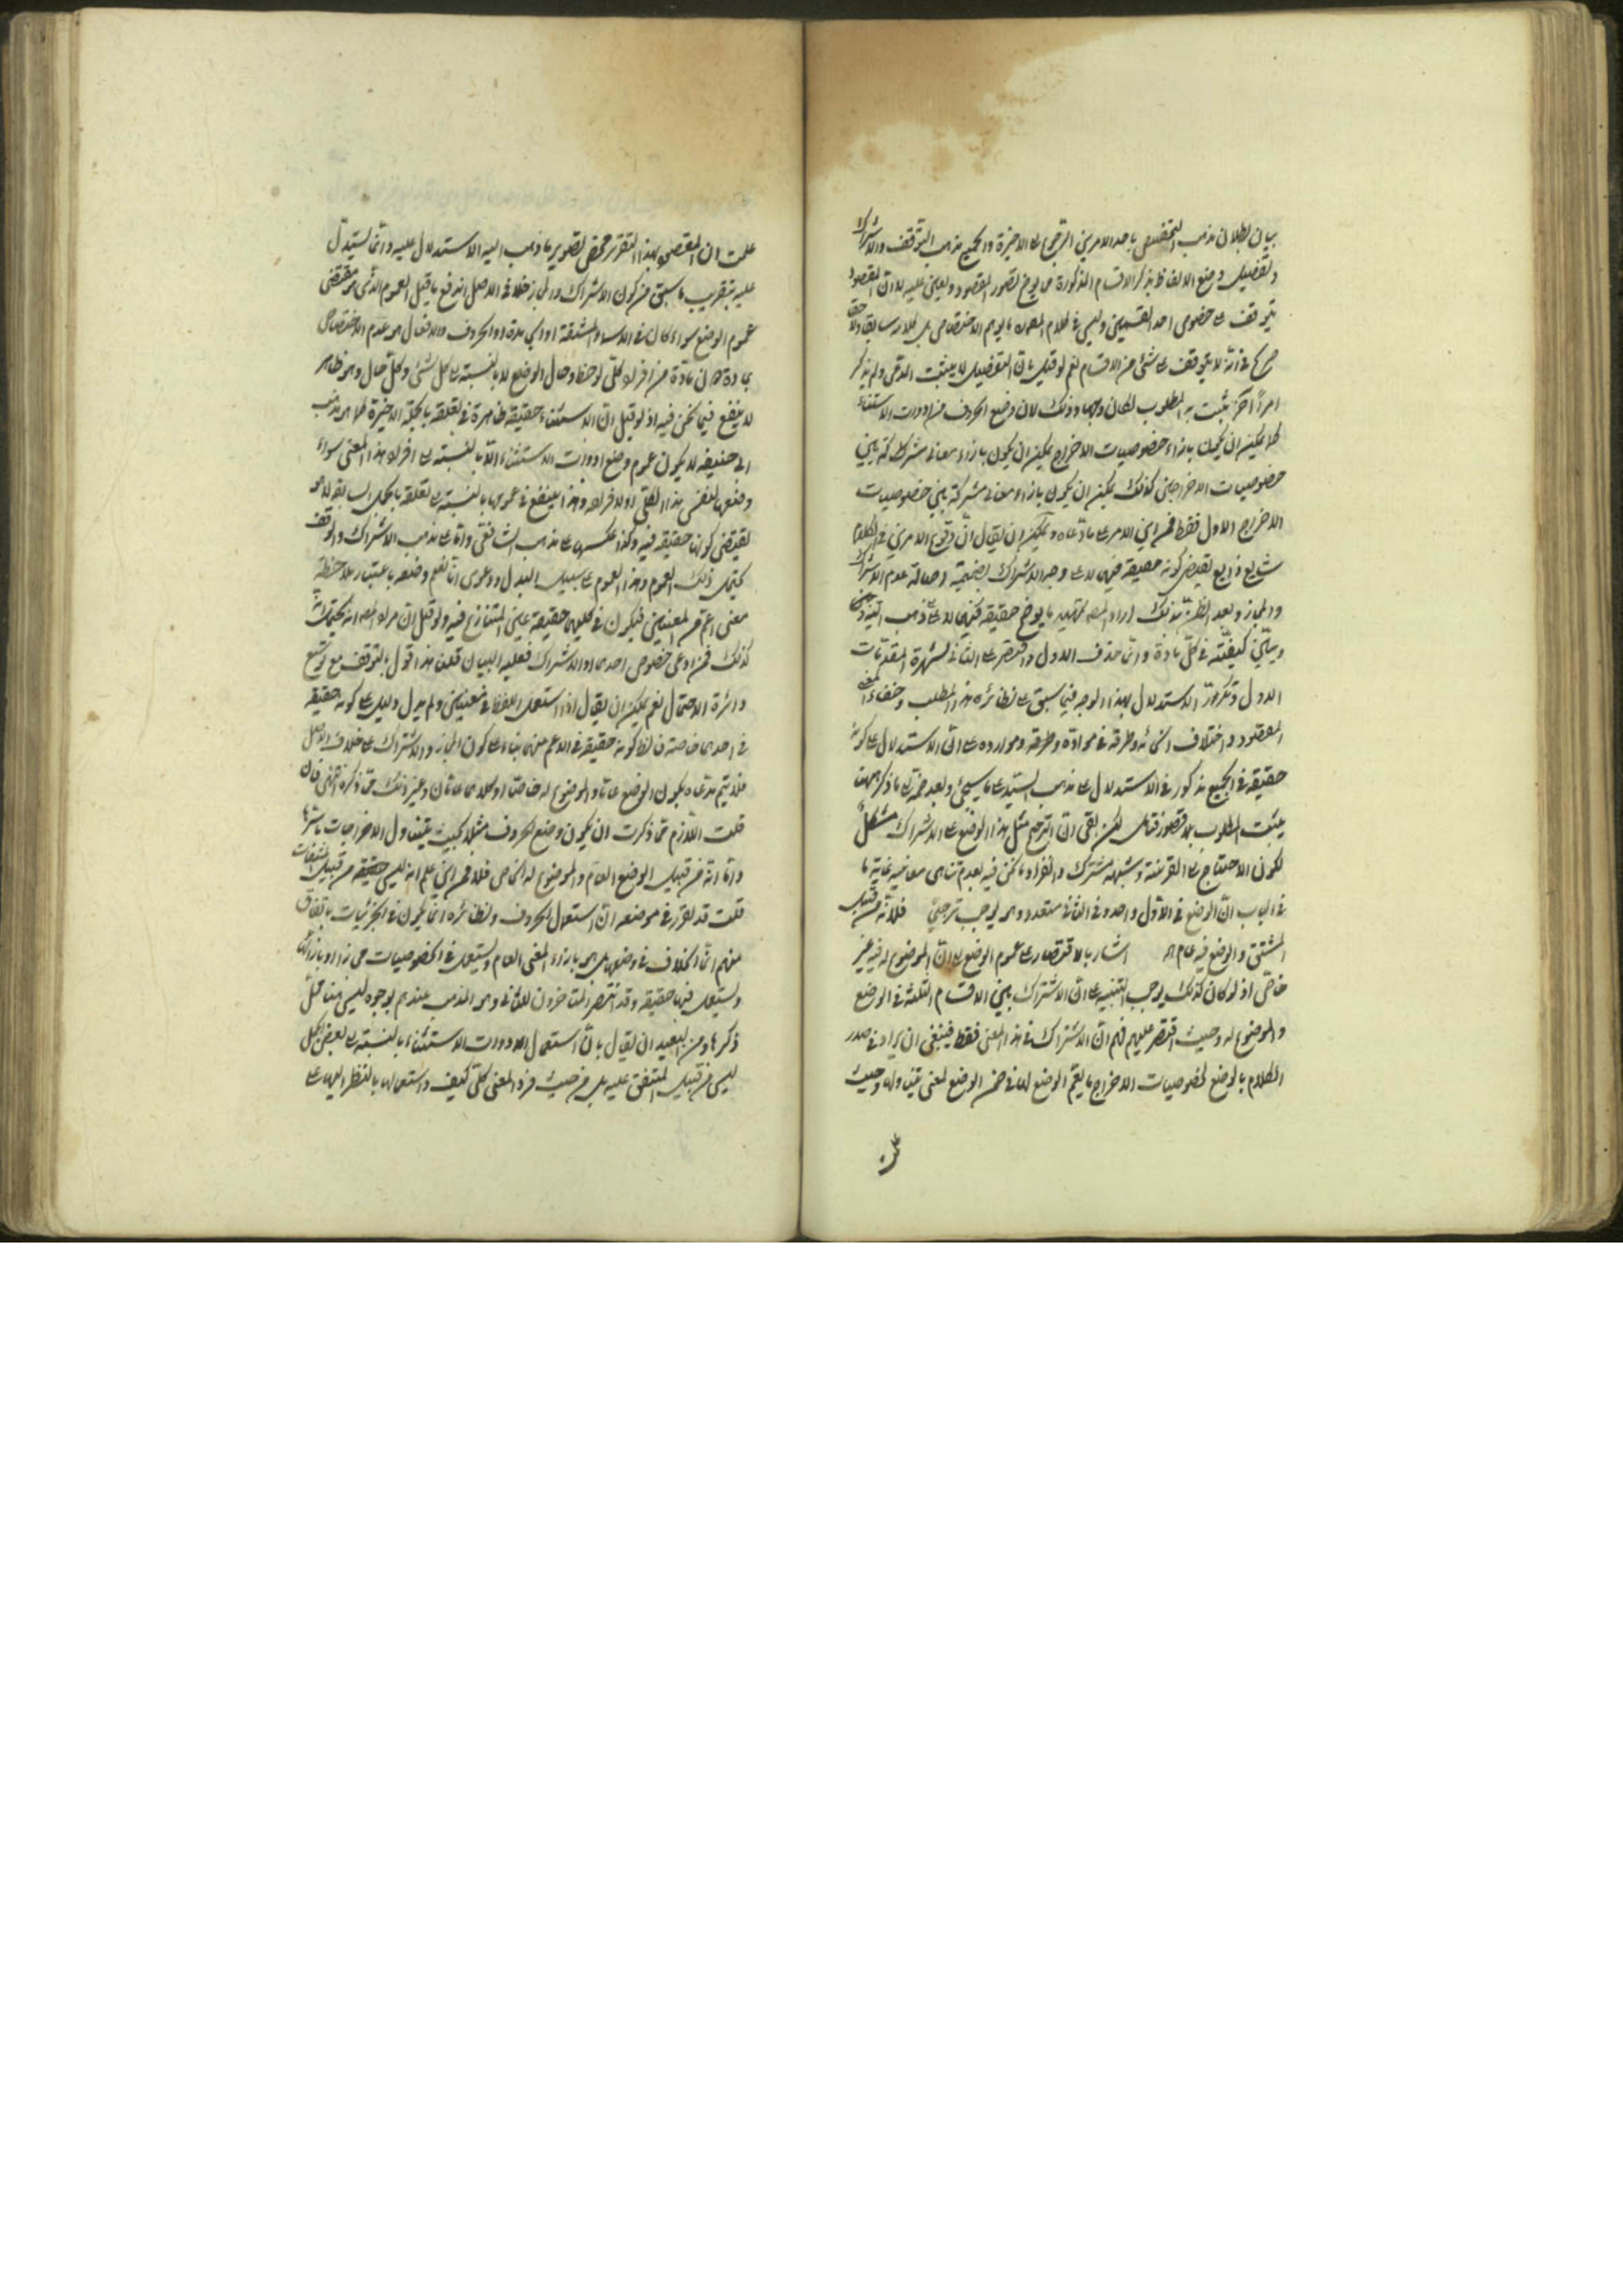 بيان بطلان مذهب التخصيص باحد الامرين الرجوع الى الاخيرة والجميع مذهب التوقف والاشتراك
وتفصيل وضع الالفاظ بذكر الاقسام المذكورة مما يوضح تصور المقصود ويعين عليه لا ان المقصود
يتوقف على خصوص احد القسمين وليس في كلام المصه ما يوهم الاختصاص بل كلامه سابقا ولاحقا
صريح في انه لا يتوقف على شئ من الاقسام نعم لو قيل بان التفصيل لا يثبت المدعى ولم يذكر
امرا آخر يثبت به المطلوب لكان وجها وذلك لان وضع الحروف من ادوات الاستثناء
كما يمكن ان يكون بازاء خصوصيات الاخراج يمكن ان يكون بازاء معان مشتركة بين
خصوصيات الاخراجين كذلك يمكن ان يكون بازاء معان مشتركة بين خصوصيات
الاخراج الاول فقط فمن اين الامر على ما ادعاه ويمكن ان يقال ان وقوع الامرين في الكلام
شايع ذايع يقتضي كونه حقيقة فيهما لا على وجه الاشتراك بضميمة اصالة عدم الاشتراك
والمجاز وبعد الظن بذلك اراد المصه تمهيد ما يوضح حقيقة فيهما لا على مذهب السيد
ويبين كيفيته في كل مادة وانما حذف الاول واقتصر على الثاني لشهرة المقدمات
الاول وتكرر الاستدلال بهذا الوجه فيما سبق على نظائر هذا المطلب وخفاء
المقصود واختلاف انحائه وطرقه في مواده وطرقه وموارده على ان الاستدلال على كونه
حقيقة في الجميع مذكور في الاستدلال على مذهب السيد على ما سيجئ وبعد ضمه الى ما ذكر ههنا
يثبت المطلوب بلا قصور فتامل لكن بقي ان الترجيح مثل هذا الوضع على الاشتراك مشكل
لكون الاحتياج الى القرينة وشبهه مشترك وانفراد ما نحن فيه بعدم تناهي معانيه غاية ما
في الباب ان الوضع في الاول واحد وفي الثاني متعدد وهو يوجب ترجيح فلانه من قبيل
المشتق والوضع فيه عام اه اشار بالاقتصار على عموم الوضع الى ان الموضوع له فيه غير
خاص اذ لو كان كذلك لوجب التنبيه على ان الاشتراك بين الاقسام الثلثة في الوضع
والموضوع له وحيث اقتصر عليه فهم ان الاشتراك في هذا المعنى فقط فينبغي ان يراد في صدر
الكلام بالوضع لخصوصيات الاخراج ما يعم الوضع لها في ضمن الوضع لمعنى يتناولها وحيث
علمت
علمت ان المقصود بهذا التقرير محض تصوير ما ذهب اليه لا الاستدلال عليه وانما يستدل
عليه بتقريب ما سبق من كون الاشتراك والمجاز خلاف الاصل اندفع ما قيل العموم الذي هو مقتضى
عموم الوضع سواء كان في الاسماء المشتقة او المبهمة او الحروف والافعال هو عدم الاختصاص
بمادة دون مادة من افراد كلي لوحظ حال الوضع لا بالنسبة الى كل شئ وكل حال وهو ظاهر
لا ينفع فيما نحن فيه اذ لو قيل ان الاستثناء حقيقة ظاهرة في تعلقه بالجملة الاخيرة كما هو مذهب
ابي حنيفه لا يكون عموم وضع ادوات الاستثناء الا بالنسبة الى افراد هذا المعنى سواء
وضعها لنفس هذا الكلي او لافراده وهذا لا ينفع في عمومها بالنسبة الى تعلقه بالجمل السابقه لا هو
يقتضي كونها حقيقة فيه وكذا عكسها على مذهب الشافعي واما على مذهب الاشتراك والوقف
يحتمل ذلك العموم وهذا العموم على سبيل البدل ودعوى انا نعلم وضعه باعتبار ملاحظة
معنى اعم من المعنيين فيكون في كليهما حقيقة عين المتنازع فيه ولو قيل ان مراد المصه انه يحتمل انه
كذلك فمن ادعى خصوص احدهما او الاشتراك فعليه البيان قلنا هذا قول بالتوقف مع توسيع
دائرة الاحتمال نعم يمكن ان يقال اذا استعمل اللفظ في معنيين ولم يدل دليل على كونه حقيقة
في احدهما خاصة فالظ كونه حقيقة في الاعم منهما بناء على كون المجاز والاشتراك على خلاف الاصل
فلا يتم مدعاه بكون الوضع عاما والموضوع له خاصا او كلاهما عامان وغير ذلك مما ذكره انتهى فان
قلت اللازم مما ذكرت ان يكون وضع الحروف مثلا بحيث يتناول الاخراجات باسرها
واما انه من قبيل الوضع العام والموضوع له الخاص فلا فمن اين علم انه ليس حقيقة من قبيل المشتقات
قلت قد تقرر في موضعه ان استعمال الحروف ونظائره انما يكون في الجزئيات باتفاق
منهم انما الخلاف في وضعها هل هو بازاء المعنى العام ويستعمل في الخصوصيات مجازا او بازائها
ويستعمل فيها حقيقة وقد انتصر المتاخرون للثاني وهو المذهب عندهم لوجوه ليس هنا محل
ذكرها ومن البعيد ان يقال بان استعمال الادوات الاستثناء بالنسبة الى بعض الجمل
ليس من قبيل المتفق عليه بل من حيث فرد المعنى كلي كيف واستعمالها بالنظر اليها على